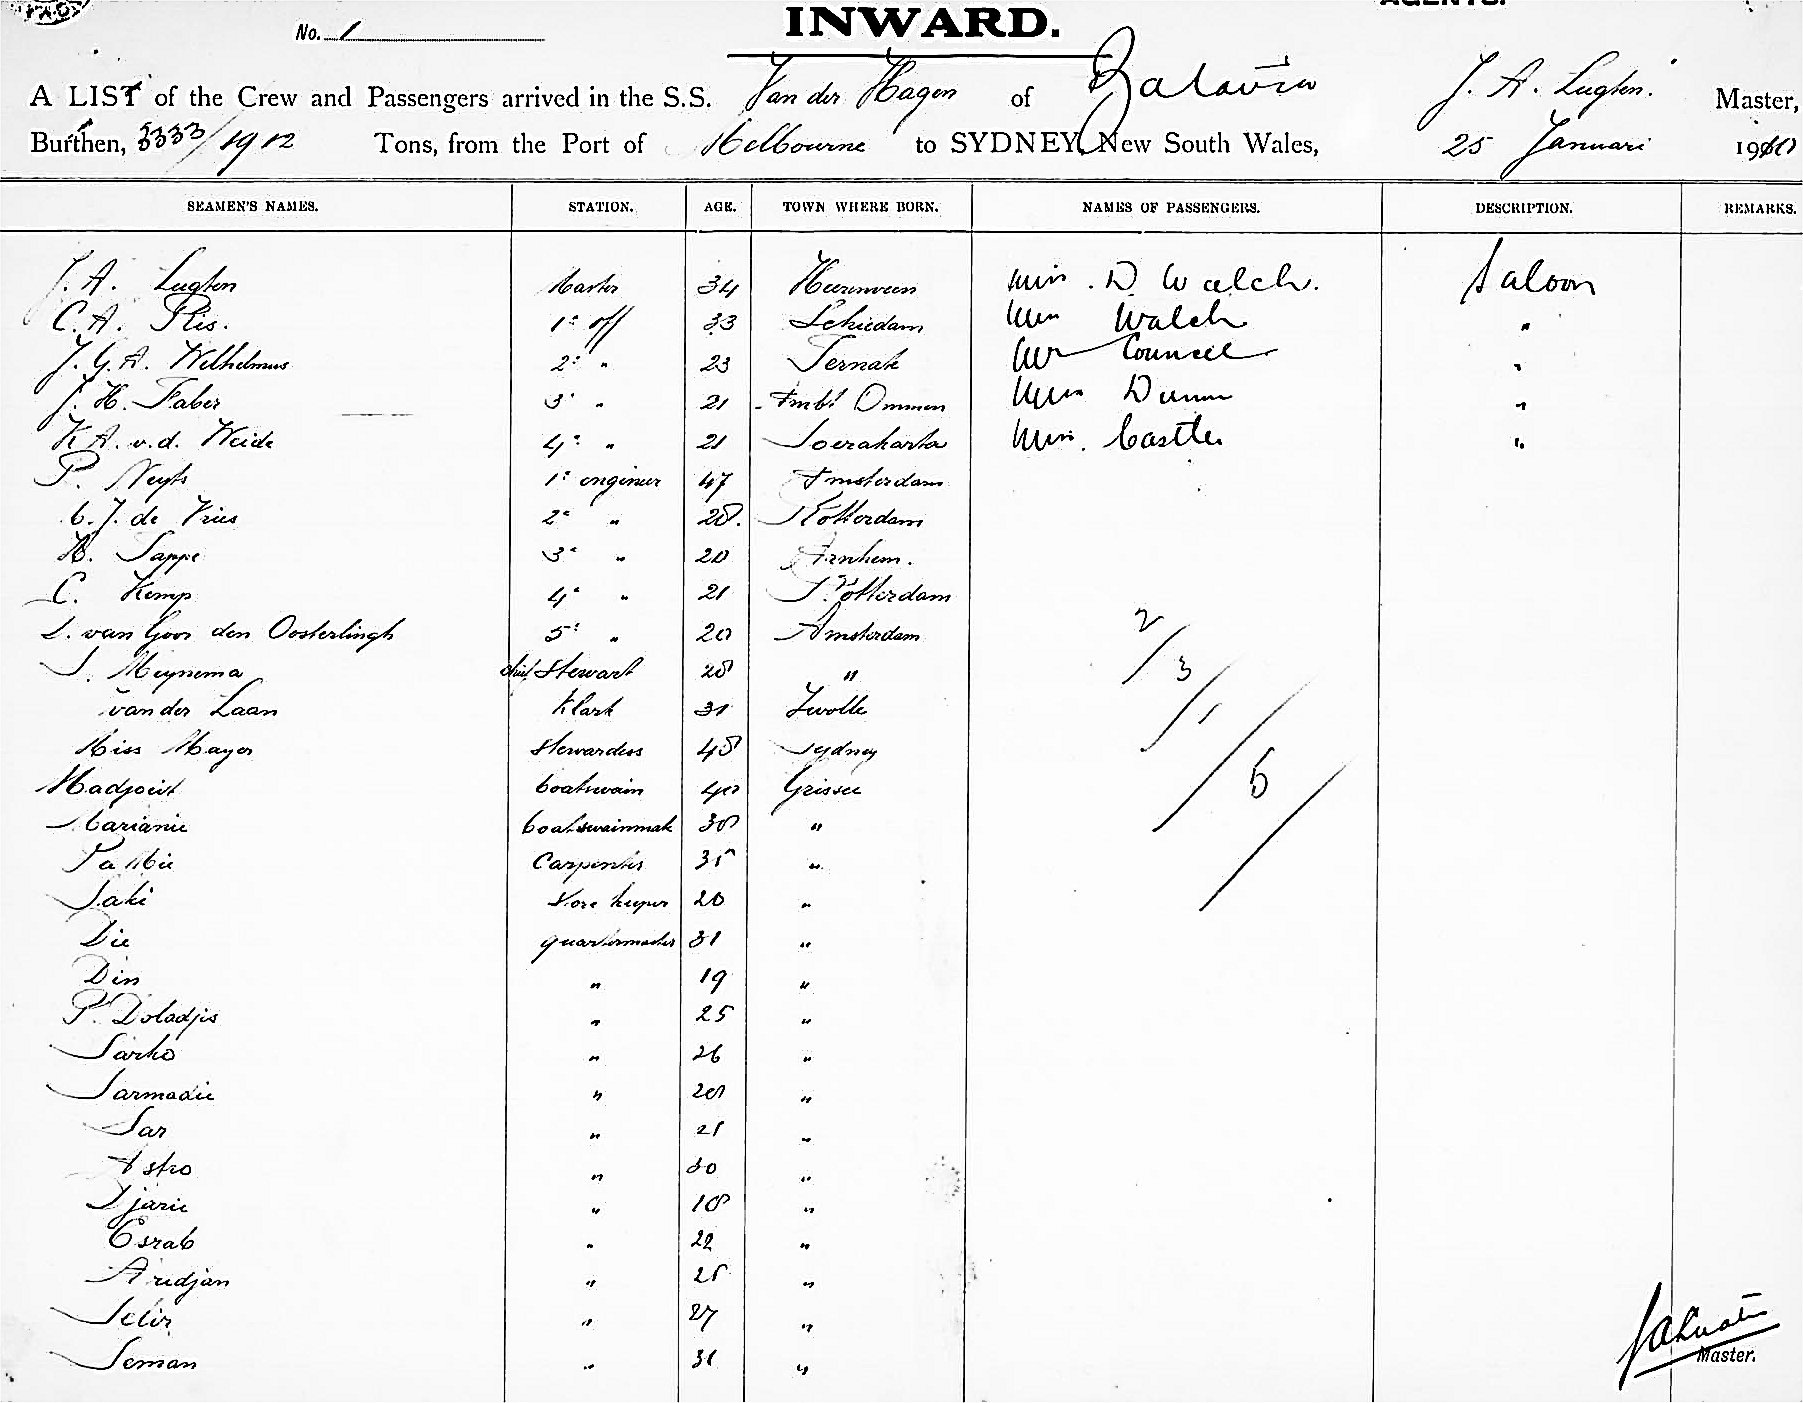 AGENTS.
No. 1
INWARD.
A LIST of the Crew and Passengers arrived in the S.S. Van der Hagen of Batavia J. A. Lugten. Master,
Burthen, 3333/1912 Tons, from the Port of Melbourne to SYDNEY, New South Wales, 25 Januari 1910
SEAMEN'S NAMES. STATION. AGE. TOWN WHERE BORN. NAMES OF PASSENGERS. DESCRIPTION. REMARKS.
J. A. Lugten Master 34 Heerenveen D. Walch. Saloon
C. A. Plis. 1e off 33 Schiedam Walch "
J. G. A. Wilhelmus 2e " 23 Ternate Mr Councel "
J. H. Faber 3e " 21 Ambt Ommen Dunn "
K A. v. d. Weide 4e " 21 Soerakarta Castle "
P. Neyts 1e engineer 47 Amsterdam
C. J. de Vries 2e " 28. Rotterdam
H. Sappe 3e " 20 Arnhem.
C. Kemp 4e " 21 Rotterdam
S. van Goor den Oosterlingh 5e " 20 Amsterdam
2/3
S. Meynema chief Stewart 28 "
van der Laan Klark 31 Zwolle
/1
Miss Mayer Stewardess 48 Sydney
/5/
Madjoeit boatswain 40 Grissee
Marianie boatswainmate 38 "
Pa Mie Carpenter 35 "
Saki Store keeper 20 "
Die quartermaster 31 "
Din " 19 "
P. Doladjis " 25 "
Sarko " 26 "
Sarmadie " 20 "
Sar " 21 "
Astro " 30 "
Djarie " 18 "
Esrab " 22 "
Aridjan " 25 "
Selir " 27 "
Seman " 31 "
Master.